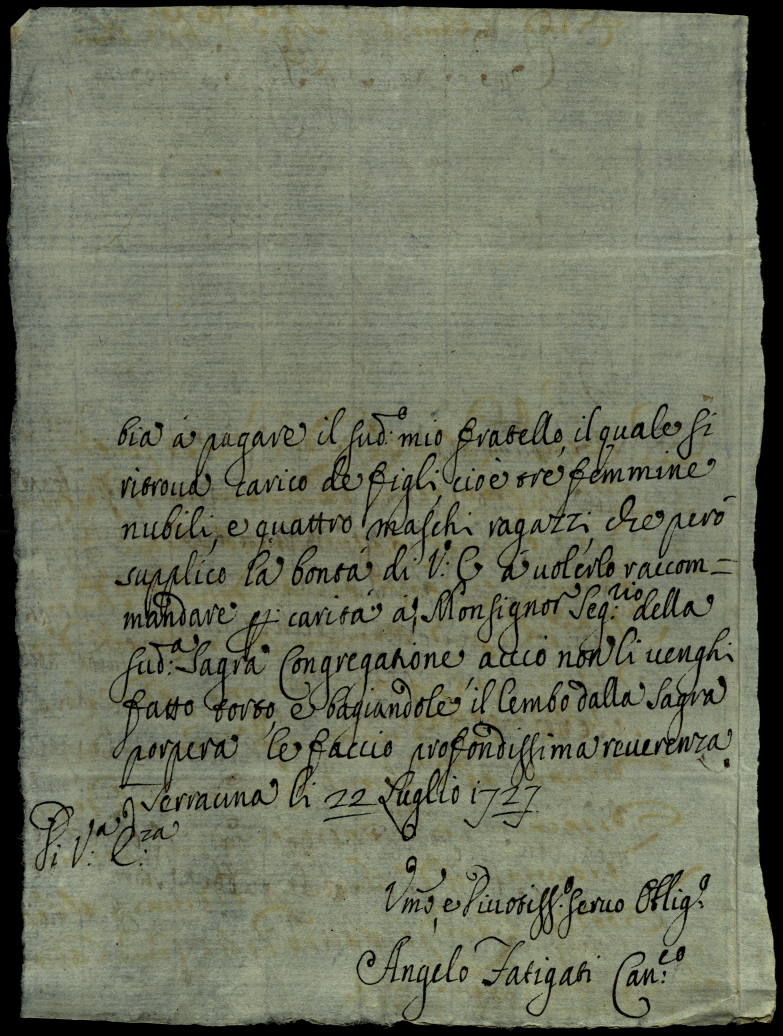 bia à pagare il sud.º mio fratello, il quale si
ritroua carico de figli, cioè trè femmine
nubili, e quattro maschi ragazzi, che però
supplico la bontà di V: E à uolerlo raccom=
mandare p carità à Monsignor Seg.rio della
sud.ª Sagra Congregatione acciò non li uenghi
fatto torto, e bagiandole il lembo dalla Sagra
porpera le faccio profondissima reuerenza.
Terracina li 22 Luglio 1727
Di V.ª E.za
Vmo, e Diuotiss.º seruo Oblig.º
Angelo Fatigati Can.co